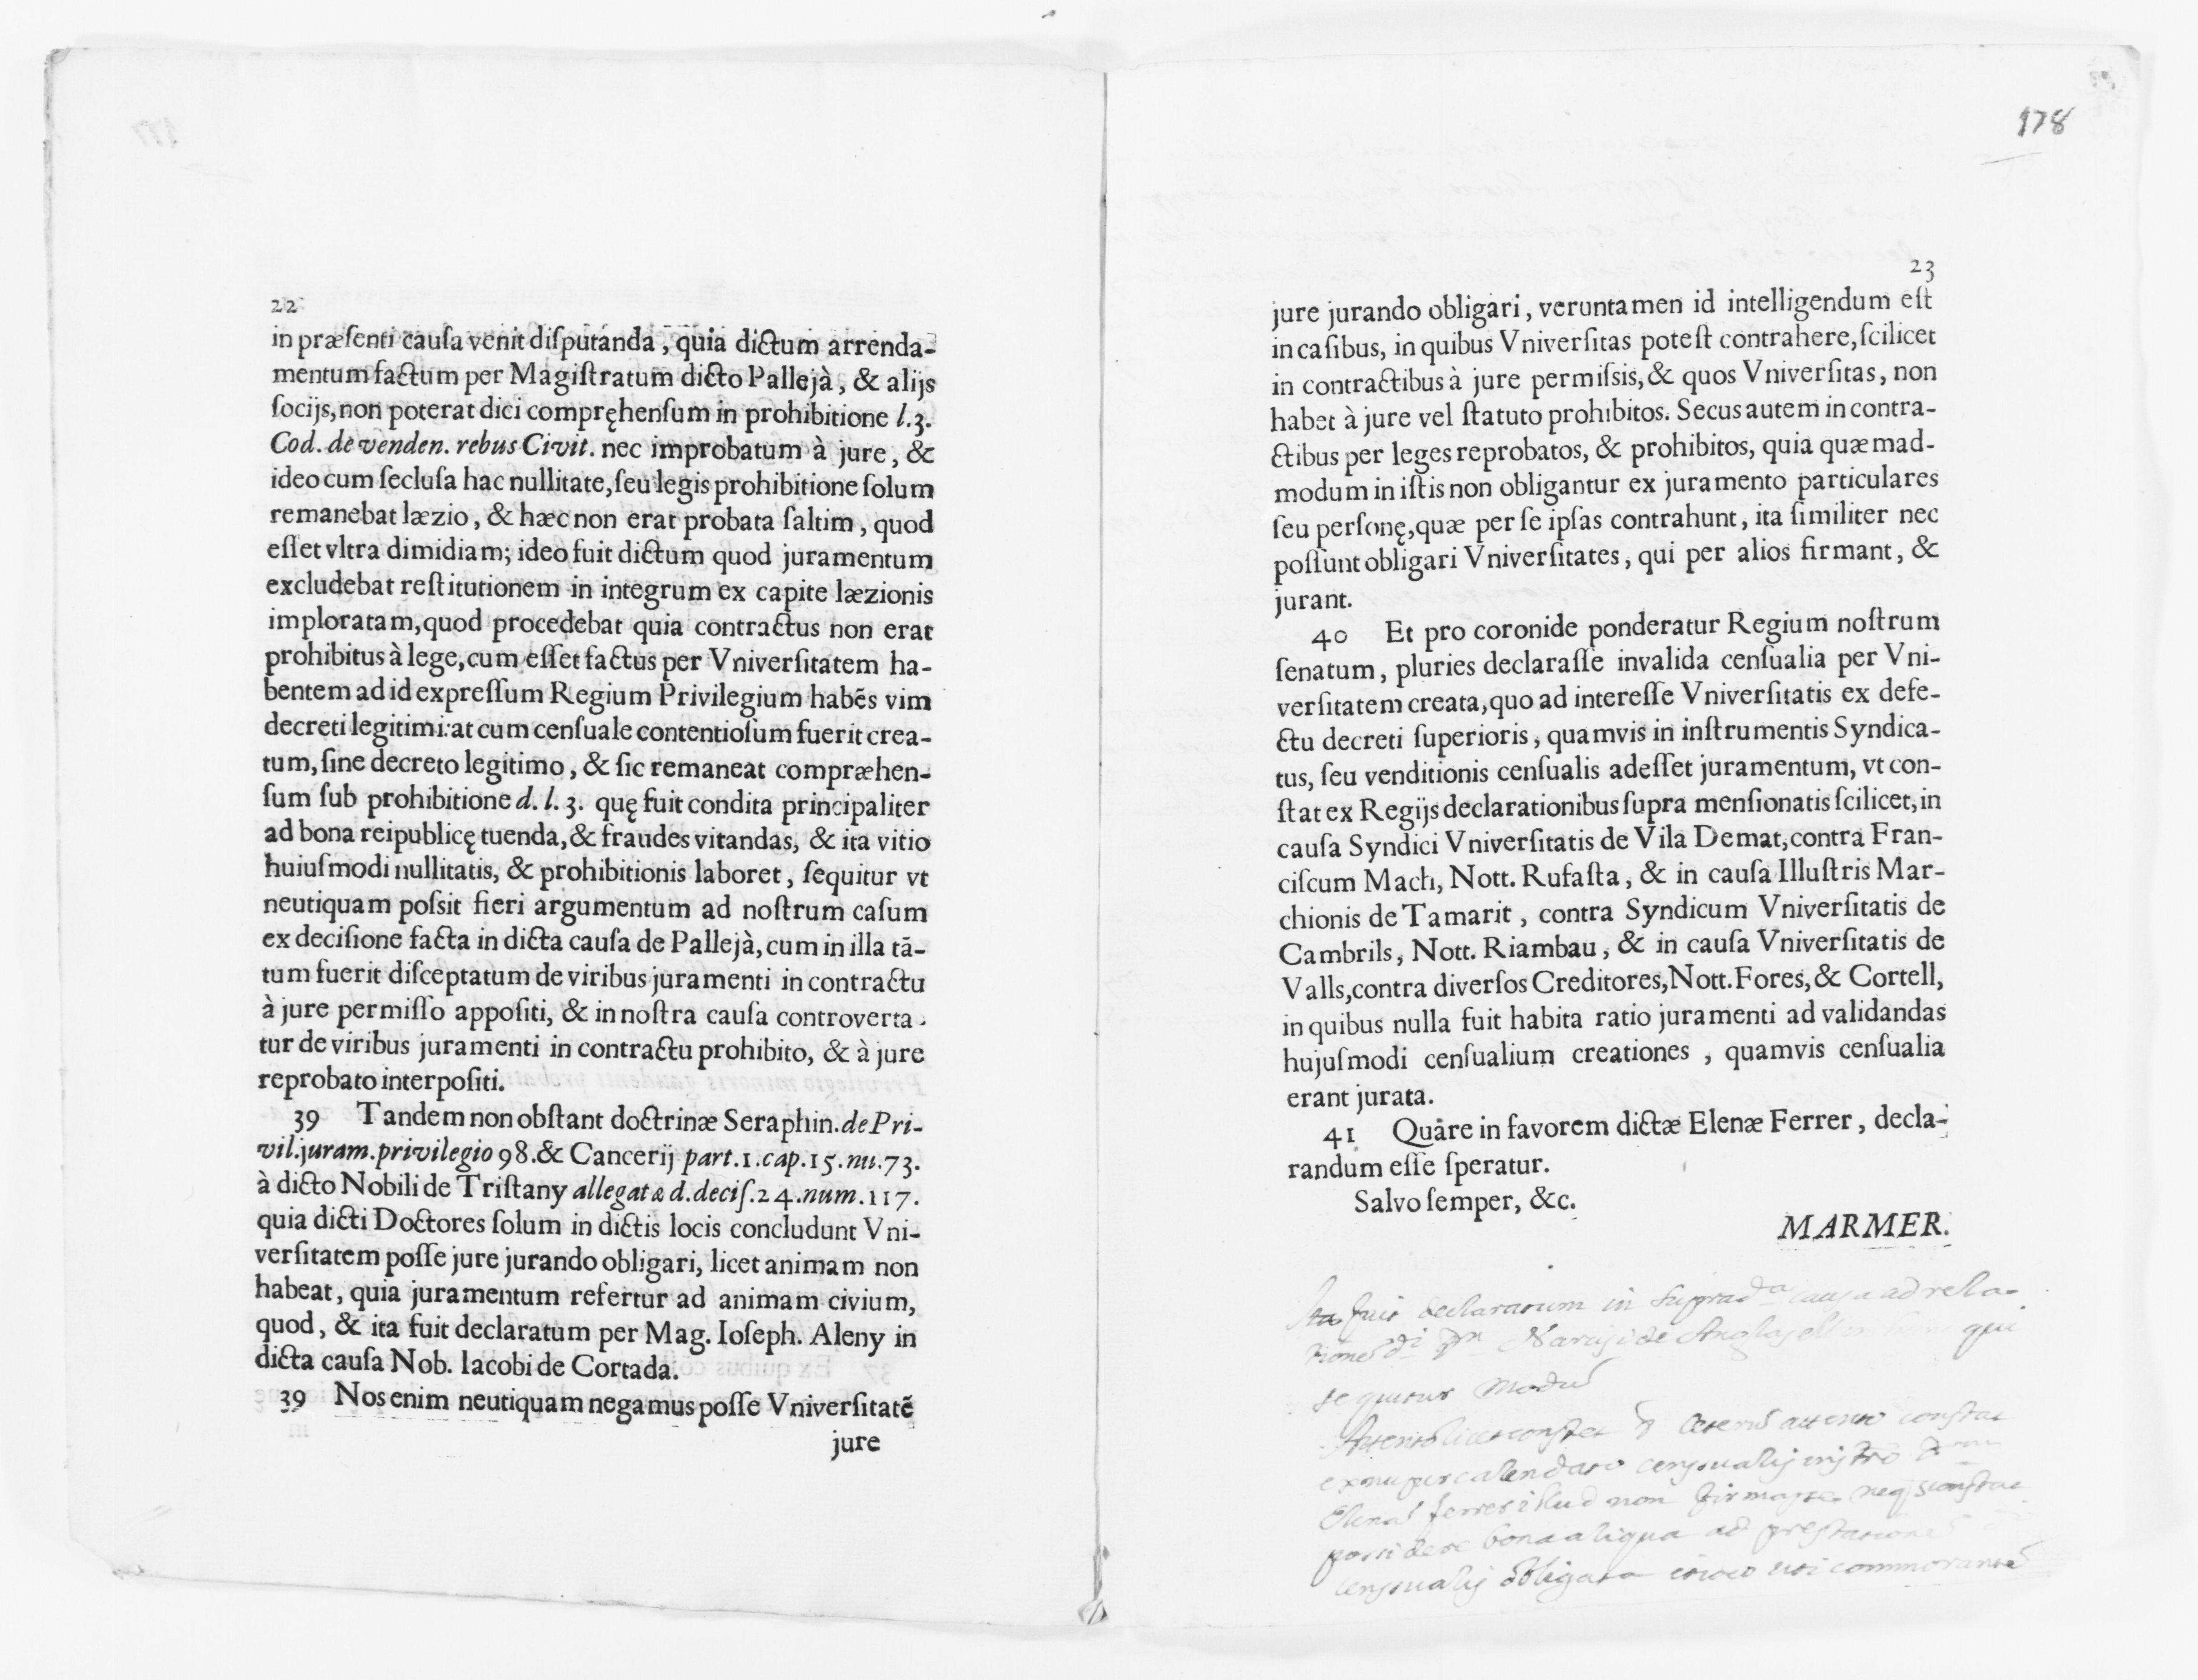 22
in præſenti cauſa venit diſputanda, quia dictum arrenda-
mentum factum per Magiſtratum dicto Pallejà, & alijs
ſocijs, non poterat dici compręhenſum in prohibitione l.3.
Cod. de venden. rebus Civit. nec improbatum à jure, &
ideo cum ſecluſa hac nullitate, ſeu legis prohibitione ſolum
remanebat læzio, & hæc non erat probata ſaltim, quod
eſſet vltra dimidiam; ideo fuit dictum quod juramentum
excludebat reſtitutionem in integrum ex capite læzionis
imploratam, quod procedebat quia contractus non erat
prohibitus à lege, cum eſſet factus per Vniverſitatem ha-
bentem ad id expreſſum Regium Privilegium habẽs vim
decreti legitimi: at cum cenſuale contentioſum fuerit crea-
tum, ſine decreto legitimo, & ſic remaneat compræhen-
ſum ſub prohibitione d. l. 3. quę fuit condita principaliter
ad bona reipublicę tuenda, & fraudes vitandas, & ita vitio
huiuſmodi nullitatis, & prohibitionis laboret, ſequitur vt
neutiquam poſsit fieri argumentum ad noſtrum caſum
ex deciſione facta in dicta cauſa de Pallejà, cum in illa tã-
tum fuerit diſceptatum de viribus juramenti in contractu
à jure permiſſo appoſiti, & in noſtra cauſa controverta-
tur de viribus juramenti in contractu prohibito, & à jure
reprobato interpoſiti.
39 Tandem non obſtant doctrinæ Seraphin. de Pri-
vil. juram. privilegio 98. & Cancerij part. 1. cap. 15. nu. 73.
à dicto Nobili de Triſtany allegatæ d. deciſ. 24. num. 117.
quia dicti Doctores ſolum in dictis locis concludunt Vni-
verſitatem poſſe jure jurando obligari, licet animam non
habeat, quia juramentum refertur ad animam civium,
quod, & ita fuit declaratum per Mag. Ioſeph. Aleny in
dicta cauſa Nob. Iacobi de Cortada.
39 Nos enim neutiquam negamus poſſe Vniverſitatẽ
jure
178
23
jure jurando obligari, veruntamen id intelligendum eſt
in caſibus, in quibus Vniverſitas poteſt contrahere, ſcilicet
in contractibus à jure permiſsis, & quos Vniverſitas, non
habet à jure vel ſtatuto prohibitos. Secus autem in contra-
ctibus per leges reprobatos, & prohibitos, quia quæmad-
modum in iſtis non obligantur ex juramento particulares
ſeu perſonę, quæ per ſe ipſas contrahunt, ita ſimiliter nec
poſſunt obligari Vniverſitates, qui per alios firmant, &
jurant.
40 Et pro coronide ponderatur Regium noſtrum
ſenatum, pluries declaraſſe invalida cenſualia per Vni-
verſitatem creata, quo ad intereſſe Vniverſitatis ex defe-
ctu decreti ſuperioris, quamvis in inſtrumentis Syndica-
tus, ſeu venditionis cenſualis adeſſet juramentum, vt con-
ſtat ex Regijs declarationibus ſupra menſionatis ſcilicet, in
cauſa Syndici Vniverſitatis de Vila Demat, contra Fran-
ciſcum Mach, Nott. Rufaſta, & in cauſa Illuſtris Mar-
chionis de Tamarit, contra Syndicum Vniverſitatis de
Cambrils, Nott. Riambau, & in cauſa Vniverſitatis de
Valls, contra diverſos Creditores, Nott. Fores, & Cortell,
in quibus nulla fuit habita ratio juramenti ad validandas
hujuſmodi cenſualium creationes, quamvis cenſualia
erant jurata.
41 Quàre in favorem dictæ Elenæ Ferrer, decla-
randum eſſe ſperatur.
Salvo ſemper, &c.
MARMER.
Ita fuit declaratum in suprad.a causa ad rela-
Narcisi de qui
sequitur modũ
constat
censualis
Elenã ferrer illud non firmasse neq constat
possidere bona aliqua ad prestationẽ
censualis obligata